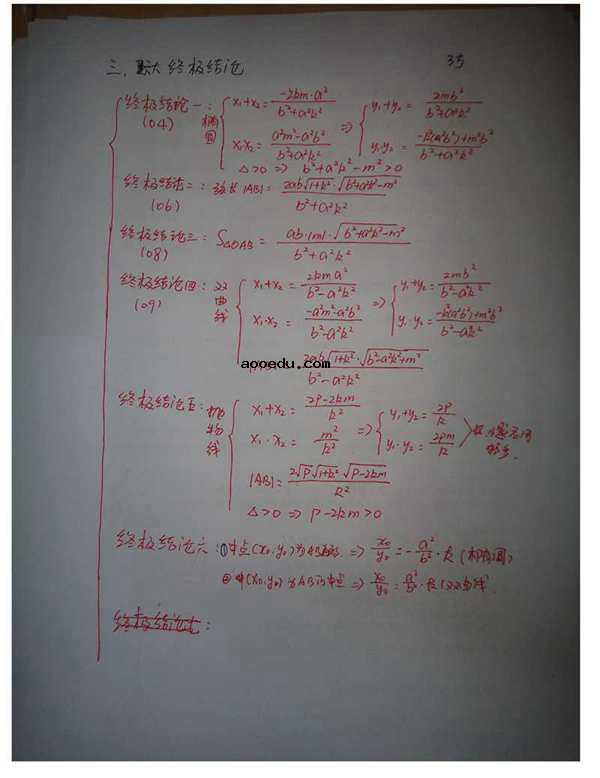 三、 大终极结论 35
终极结论一: 椭圆 { x₁+x₂ = -2km·a² / b²+a²k² ⇒ { y₁+y₂ = 2mb² / b²+a²k²
(04) x₁x₂ = a²m²-a²b² / b²+a²k² y₁·y₂ = -k²(a²b²)+m²b² / b²+a²k²
Δ>0 ⇒ b²+a²k²-m²>0
终极结论二: 弦长|AB| = 2ab√1+k²·√b²+a²k²-m² / b²+a²k²
(06)
终极结论三: S△OAB = ab·|m|·√b²+a²k²-m² / b²+a²k²
(08)
终极结论四: 双曲线 { x₁+x₂ = 2kma² / b²-a²k² ⇒ { y₁+y₂ = 2mb² / b²-a²k²
(09) x₁·x₂ = -a²m²-a²b² / b²-a²k² y₁·y₂ = -k²(a²b²)+m²b² / b²-a²k²
2ab√1+k²·√b²-a²k²+m² / b²-a²k²
aooedu.com
终极结论五: 抛物线 { x₁+x₂ = 2p-2km / k² ⇒ { y₁+y₂ = 2p / k
x₁·x₂ = m² / k² y₁·y₂ = 2pm / k
|AB| = 2√p√1+k²√p-2km / k²
Δ>0 ⇒ p-2km>0
终极结论六: ①中点(x₀,y₀)为AB ⇒ x₀/y₀ = -a²/b²·k (椭圆)
②中(x₀,y₀)为AB的中点 ⇒ x₀/y₀ = a²/b²·k (双曲线
终极结论七: